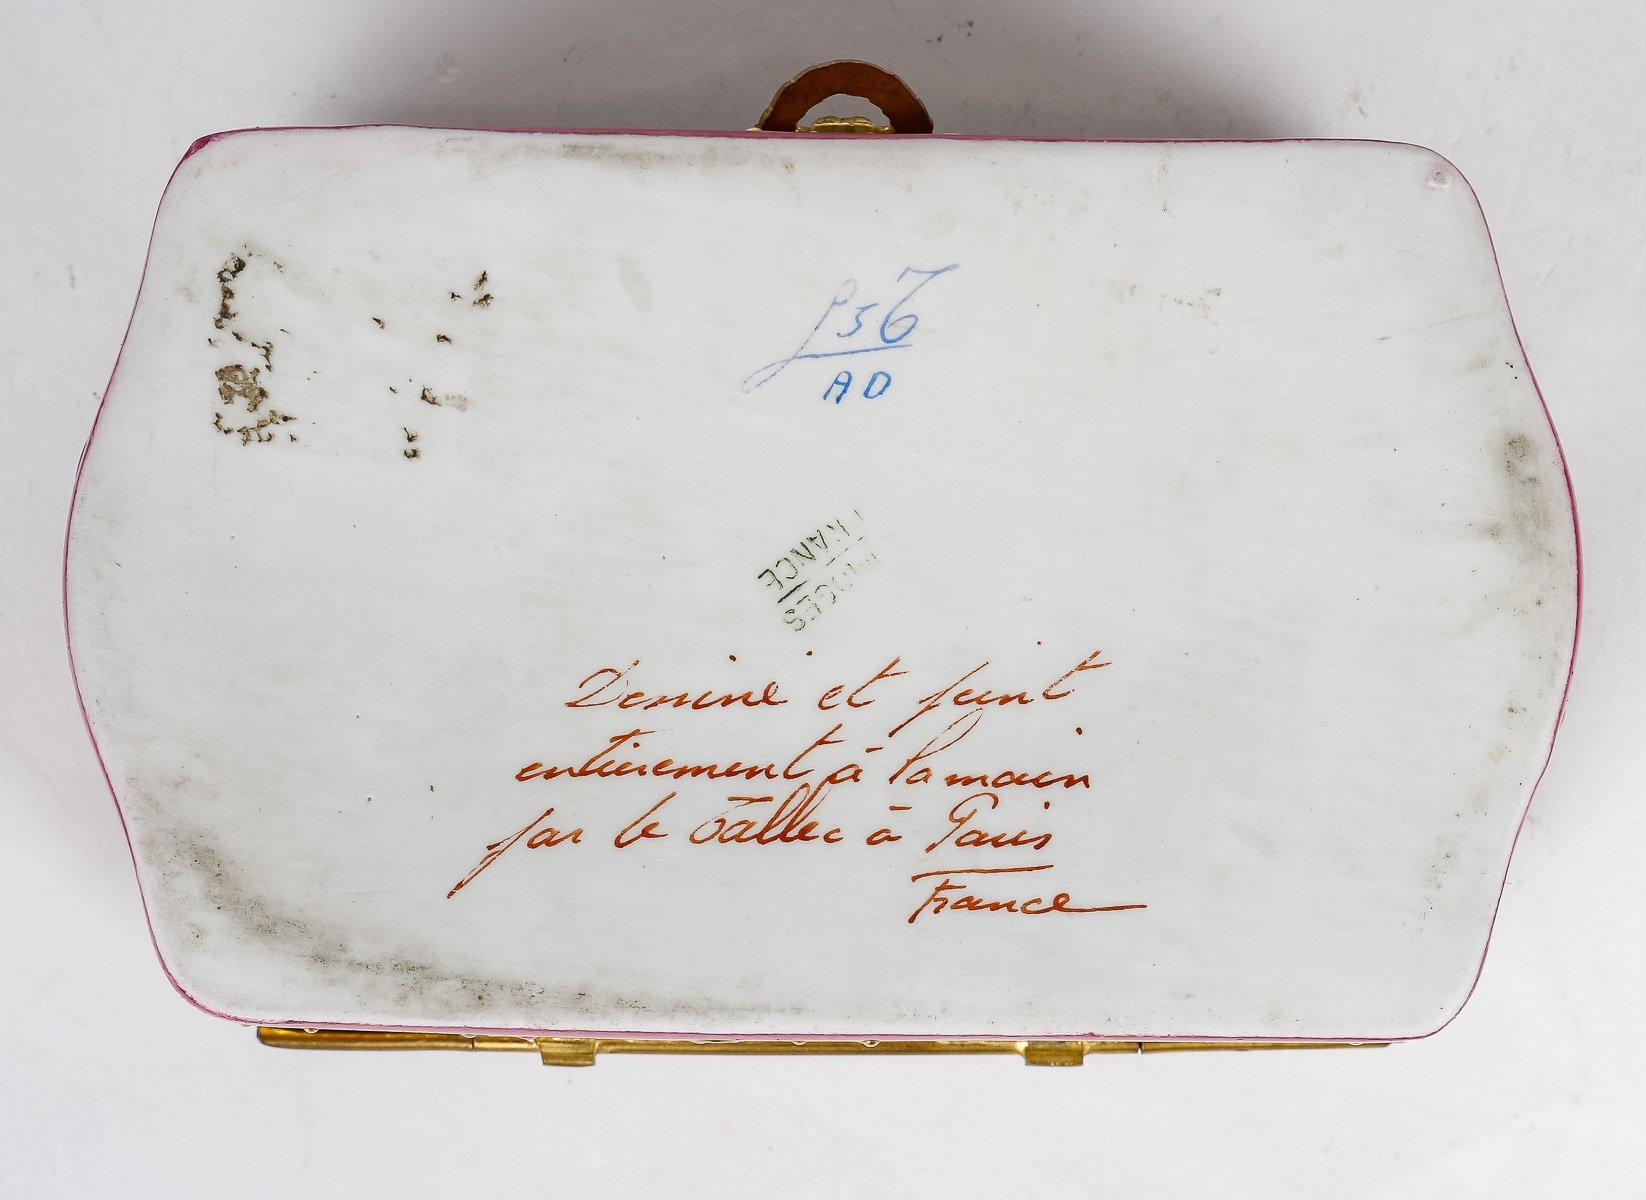 AD
FRANCE
Dessiné et peint
entièrement à la main
par le Tallec à Paris
France